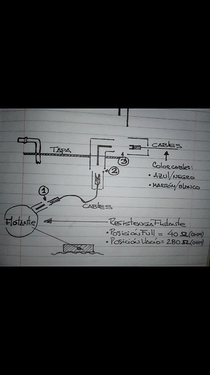 TAPA
CABLES
3
COLOR CABLES:
• AZUL/NEGRO
2
• MARRÓN/BLANCO
1
CABLES
Flotante
Resistencia Flotante
• Posición Full = 40 Ω (OHM)
• Posición Vacío = 280 Ω (OHM)